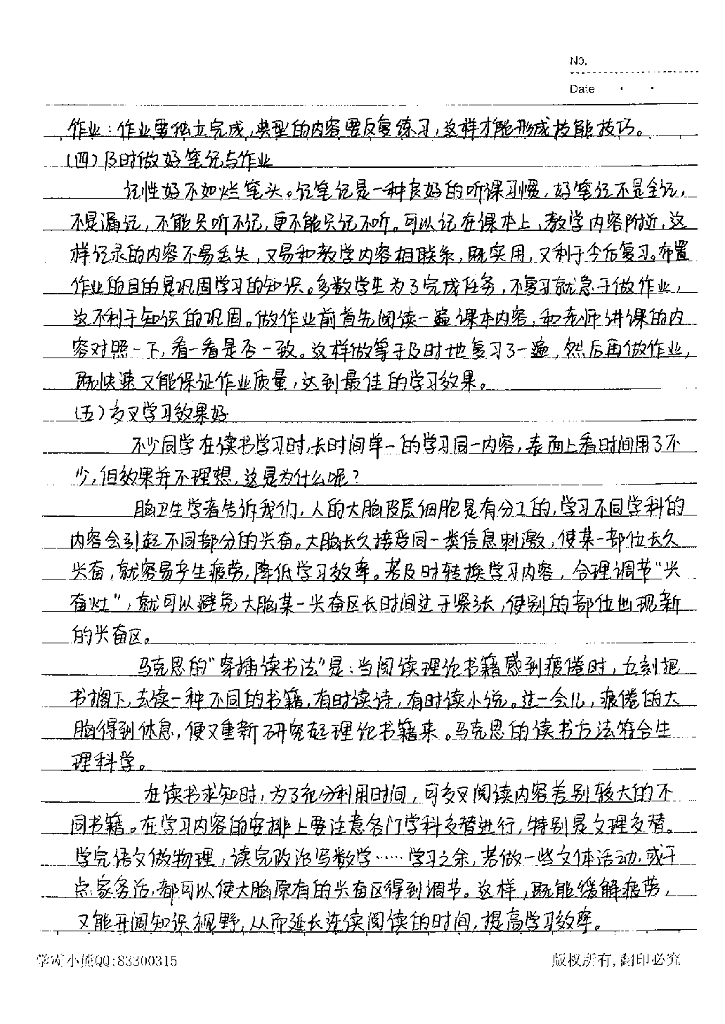 No.
Date
作业：作业要独立完成，典型的内容要反复练习，这样才能形成技能技巧。
(四)及时做好笔记与作业
记性好不如烂笔头。记笔记是一种良好的听课习惯，好笔记不是全记，
不是漏记，不能只听不记，更不能只记不听。可以记在课本上，教学内容附近，这
样记录的内容不易丢失，又易和教学内容相联系，既实用，又利于今后复习。布置
作业的目的是巩固学习的知识。多数学生为了完成任务，不复习就急于做作业，
这不利于知识的巩固。做作业前首先阅读一遍课本内容，和老师讲课的内
容对照一下，看一看是否一致。这样做等于及时地复习了一遍，然后再做作业，
既快速又能保证作业质量，达到最佳的学习效果。
(五)交叉学习效果好
不少同学在读书学习时，长时间单一的学习同一内容，表面上看时间用了不
少，但效果并不理想，这是为什么呢？
脑卫生学者告诉我们，人的大脑皮层细胞是有分工的，学习不同学科的
内容会引起不同部分的兴奋。大脑长久接受同一类信息刺激，使某一部位长久
兴奋，就容易产生疲劳，降低学习效率。若及时转换学习内容，合理调节“兴
奋灶”，就可以避免大脑某一兴奋区长时间过于紧张，使别的部位出现新
的兴奋区。
马克思的“穿插读书法”是：当阅读理论书籍感到疲倦时，立刻把
书搁下，去读一种不同的书籍，有时读诗，有时读小说。过一会儿，疲倦的大
脑得到休息，便又重新研究起理论书籍来。马克思的读书方法符合生
理科学。
在读书求知时，为了充分利用时间，可交叉阅读内容差别较大的不
同书籍。在学习内容的安排上要注意各门学科交替进行，特别是文理交替。
学完语文做物理，读完政治写数学……学习之余，若做一些文体活动，或干
点家务活，都可以使大脑原有的兴奋区得到调节。这样，既能缓解疲劳，
又能开阔知识视野，从而延长连续阅读的时间，提高学习效率。
学霸小熊QQ:83300315
版权所有，翻印必究